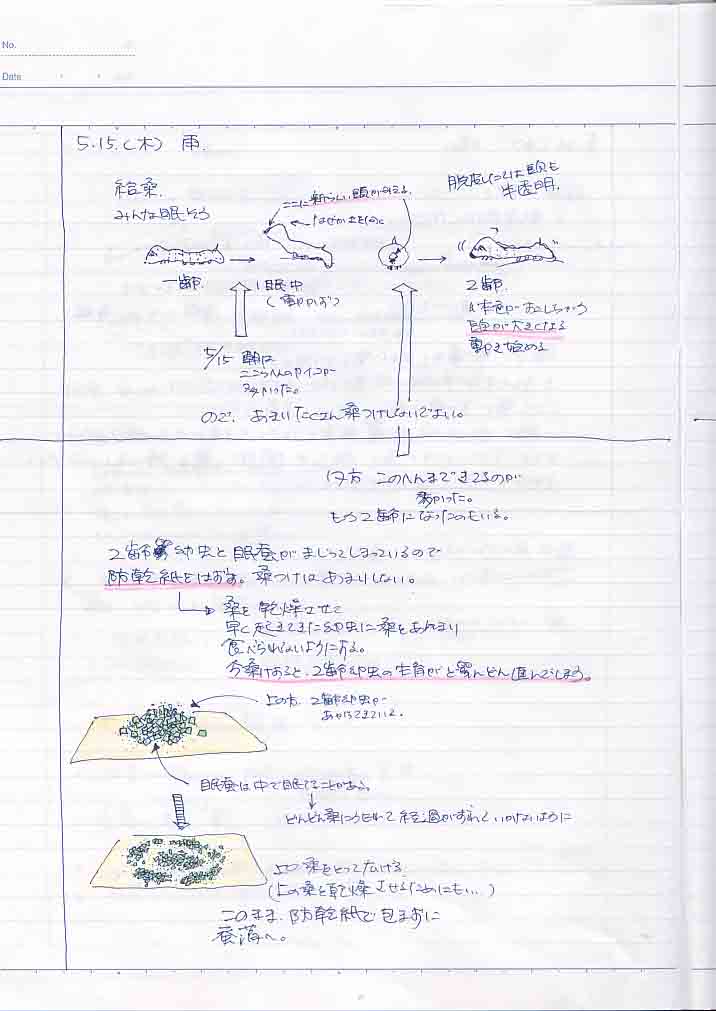 No.
Date
5.15.(木) 雨.
給桑.
みんな眠そう
ここに新らしい頭が見える.
なぜか上をむく
脱皮したては頭も
半透明.
一齢.
1眠中
(動かず)
2齢.
頭が大きくなる
動き始める
5/15 朝は
ここらへんのカイコが
多かった。
ので、あまりたくさん桑つけしないでよい。
夕方 このへんまできてるのが
多かった。
もう2齢になったのもいる。
2齢幼虫と眠蚕がまじってしまっているので
防乾紙をはずす。桑つけはあまりしない。
桑を乾燥させて
早く起きてきた幼虫に桑をあんまり
食べられないようにする。
桑つけすると、2齢幼虫の生育がどんどん進んでしまう。
上の方、2齢幼虫が
あがってきている。
眠蚕は中で眠ってることがある。
どんどん桑につもれて経過がずれていかないように
上の桑をとって広げる
(上の桑を乾燥させるためにも…)
このまま、防乾紙で包まずに
蚕箔へ。